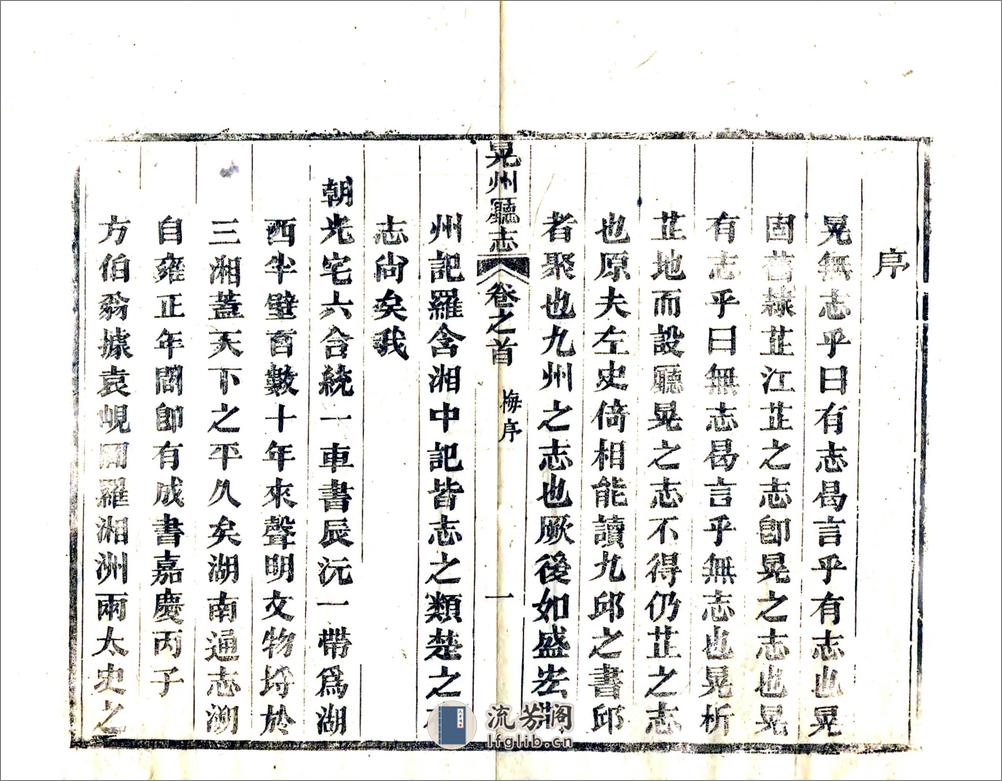 序
晃無志乎曰有志曷言乎有志也晃
固舊隸芷江芷之志卽晃之志也晃
有志乎曰無志曷言乎無志也晃析
芷地而設廳晃之志不得仍芷之志
也原夫左史倚相能讀九邱之書邱
者聚也九州之志也厥後如盛宏
晃州廳志 卷之首 梅序 一
州記羅含湘中記皆志之類楚之
志尙矣我
朝光宅六合統一車書辰沅一帶爲湖
西半壁百數十年來聲明文物埒於
三湘蓋天下之平久矣湖南通志溯
自雍正年間卽有成書嘉慶丙子
方伯翁據袁峴岡羅湘洲兩太史之
流芳阁
lfglib.cn